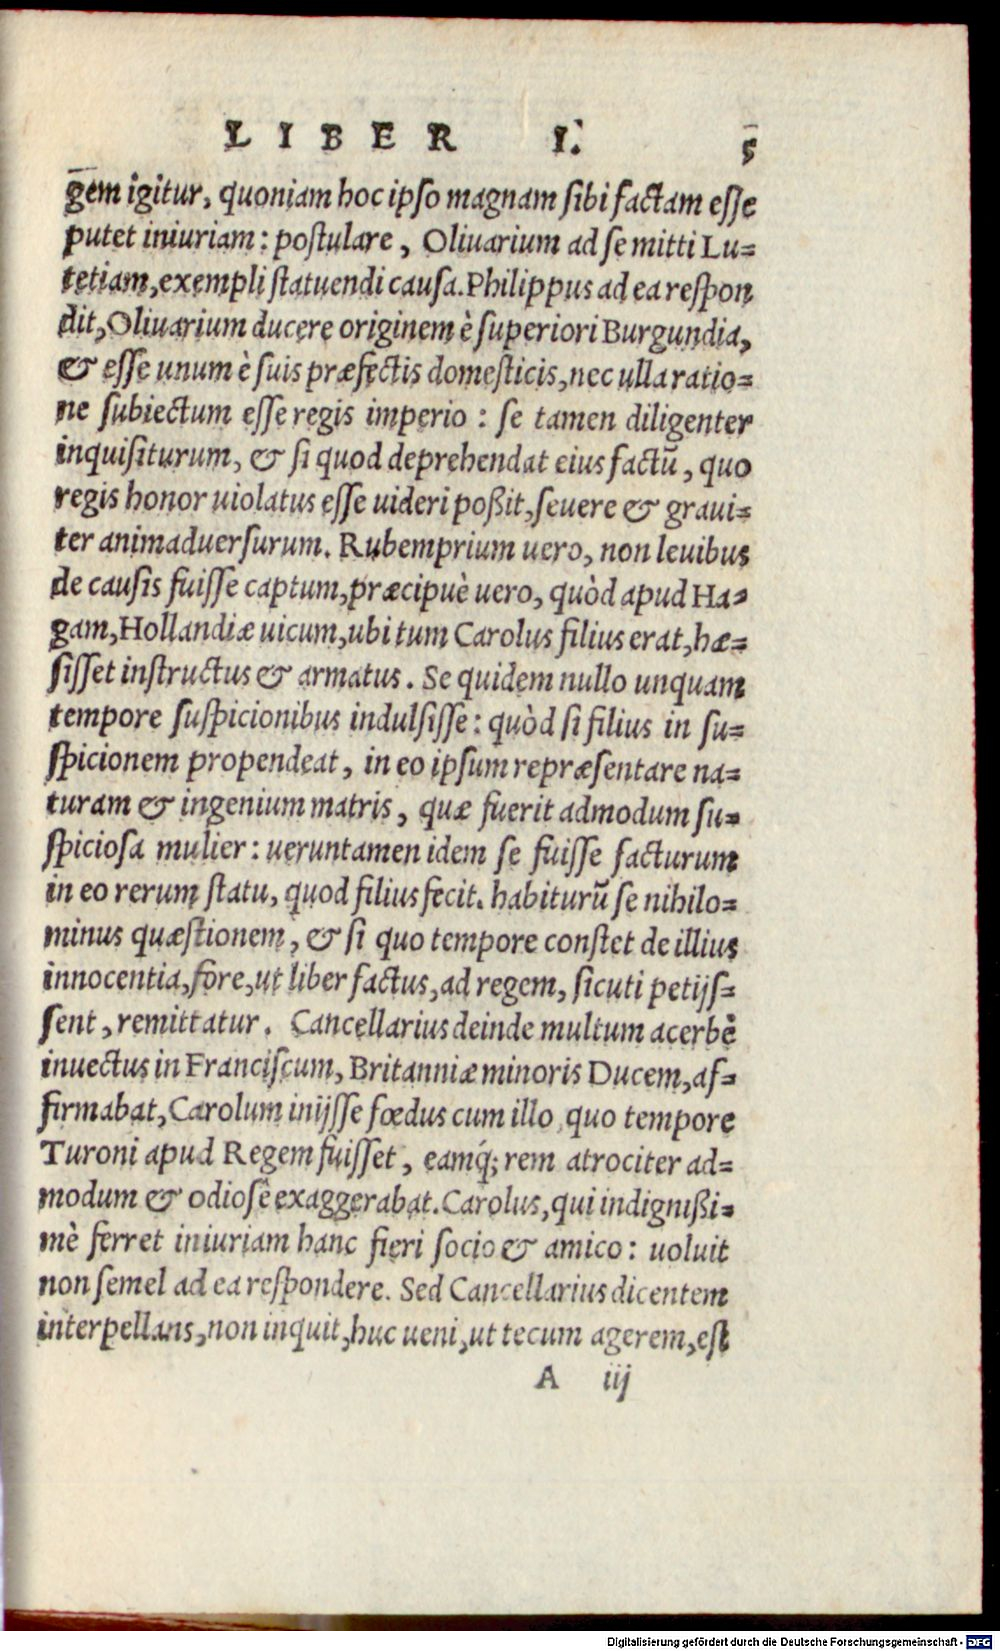 LIBER I. 5
gem igitur, quoniam hoc ipso magnam sibi factam esse
putet iniuriam: postulare, Oliuarium ad se mitti Lu=
tetiam, exempli statuendi causa. Philippus ad ea respon
dit, Oliuarium ducere originem è superiori Burgundia,
& esse unum è suis præfectis domesticis, nec ulla ratio=
ne subiectum esse regis imperio: se tamen diligenter
inquisiturum, & si quod deprehendat eius factũ, quo
regis honor uiolatus esse uideri poßit, seuere & graui=
ter animaduersurum. Rubemprium uero, non leuibus
de causis fuisse captum, præcipuè uero, quòd apud Ha=
gam, Hollandiæ uicum, ubi tum Carolus filius erat, hæ=
sisset instructus & armatus. Se quidem nullo unquam
tempore suspicionibus indulsisse: quòd si filius in su=
spicionem propendeat, in eo ipsum repræsentare na=
turam & ingenium matris, quæ fuerit admodum su=
spiciosa mulier: ueruntamen idem se fuisse facturum
in eo rerum statu, quod filius fecit. habiturũ se nihilo=
minus quæstionem, & si quo tempore constet de illius
innocentia, fore, ut liber factus, ad regem, sicuti petijs=
sent, remittatur. Cancellarius deinde multum acerbè
inuectus in Franciscum, Britanniæ minoris Ducem, af=
firmabat, Carolum inijsse fœdus cum illo, quo tempore
Turoni apud Regem fuisset, eamq́; rem atrociter ad=
modum & odiosè exaggerabat. Carolus, qui indignißi=
mè ferret iniuriam hanc fieri socio & amico: uoluit
non semel ad ea respondere. Sed Cancellarius dicentem
interpellans, non inquit, huc ueni, ut tecum agerem, est
A iij
Digitalisierung gefördert durch die Deutsche Forschungsgemeinschaft - DFG